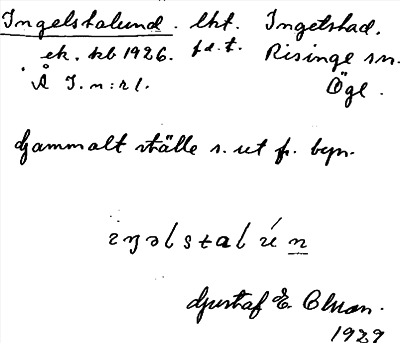 Ingelstalund. lht. Ingelstad.
ek. kb 1926. f.d.t. Risinge sn.
Å I. n:r 1. Ögl.
Gammalt ställe s. ut fr. byn.
Gustaf E.
1929